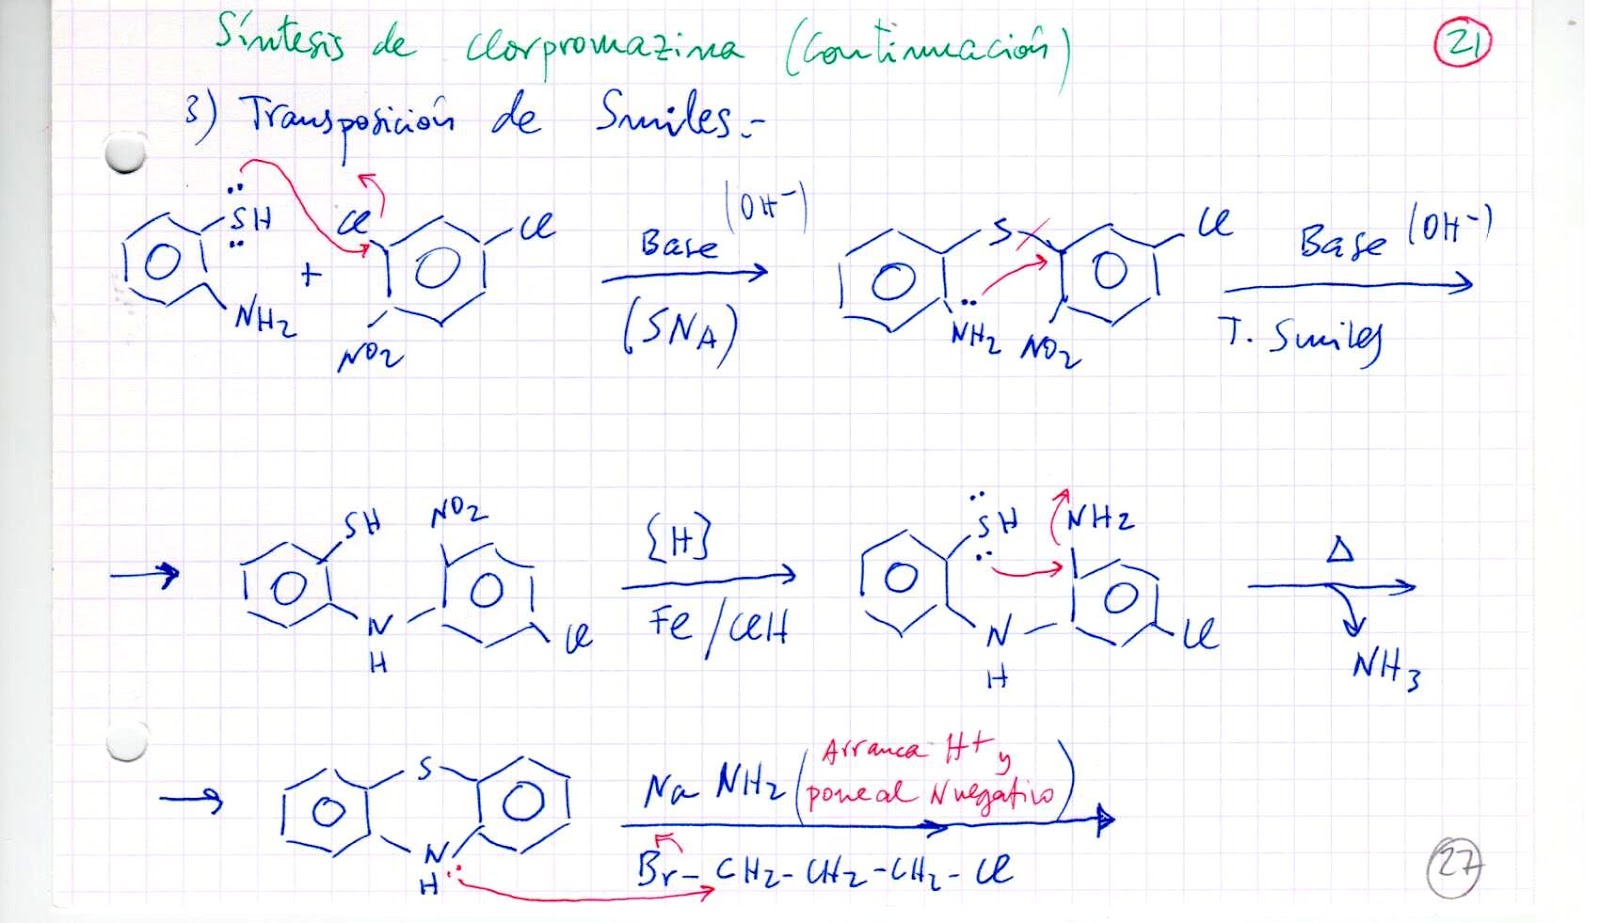 Síntesis de clorpromazina (continuación)
21
3) Transposición de Smiles.-
SH
NH2
+
Cl
Cl
NO2
Base (OH-)
(SNA)
S
NH2
NO2
Cl
Base (OH-)
T. Smiles
SH
NO2
N
H
Cl
{H}
Fe/ClH
SH
NH2
N
H
Cl
Δ
NH3
S
N
H
NaNH2 (Arranca H+ y
pone al N negativo)
Br-CH2-CH2-CH2-Cl
27